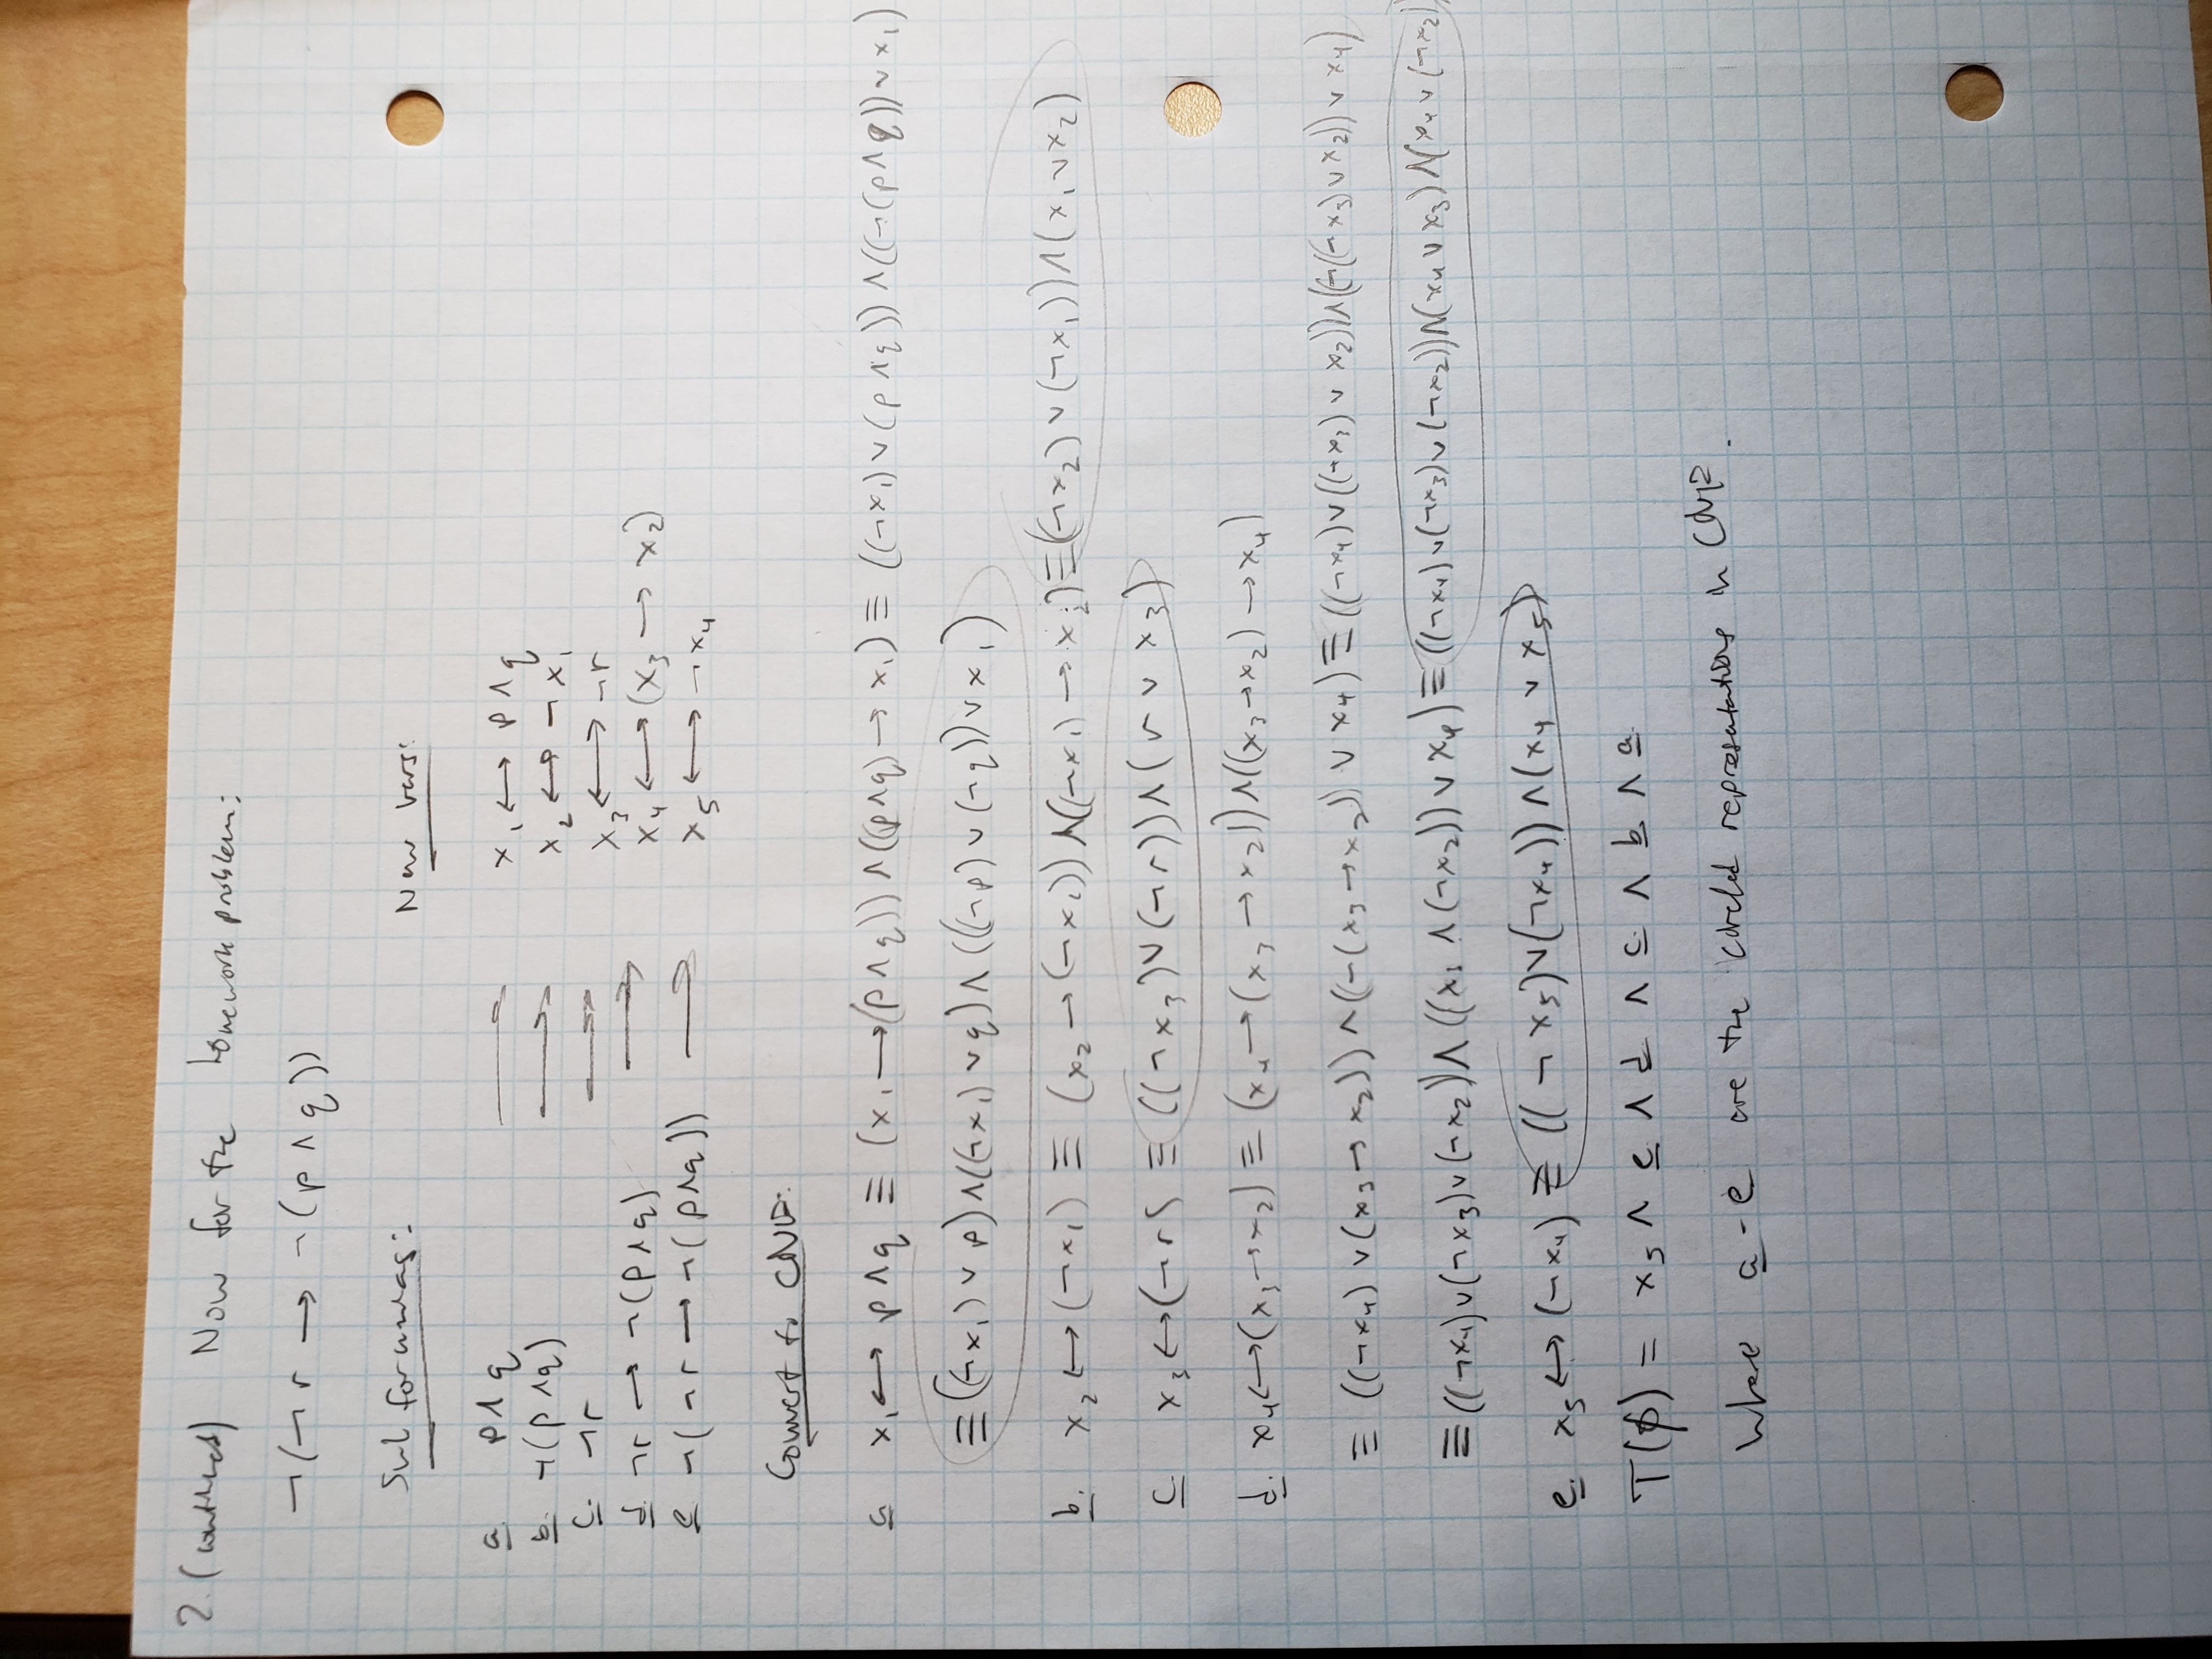 2. (continued) Now for the homework problem:
¬(¬r → ¬(p ∧ q))
Sub formulas: New vars:
a. p ∧ q → x₁ ↔ p ∧ q
b. ¬(p ∧ q) → x₂ ↔ ¬x₁
c. ¬r → x₃ ↔ ¬r
d. ¬r → ¬(p ∧ q) → x₄ ↔ (x₃ → x₂)
e. ¬(¬r → ¬(p ∧ q)) → x₅ ↔ ¬x₄
Convert to CNF:
a x₁ ↔ p ∧ q ≡ (x₁ → (p ∧ q)) ∧ ((p ∧ q) → x₁) ≡ ((¬x₁) ∨ (p ∧ q)) ∧ ((¬(p ∧ q)) ∨ x₁)
≡ ((¬x₁) ∨ p) ∧ ((¬x₁) ∨ q) ∧ (((¬p) ∨ (¬q)) ∨ x₁)
b. x₂ ↔ (¬x₁) ≡ (x₂ → (¬x₁)) ∧ ((¬x₁) → x₂) ≡ ((¬x₂) ∨ (¬x₁)) ∧ (x₁ ∨ x₂)
c. x₃ ↔ (¬r) ≡ ((¬x₃) ∨ (¬r)) ∧ (r ∨ x₃)
d. x₄ ↔ (x₃ → x₂) ≡ (x₄ → (x₃ → x₂)) ∧ ((x₃ → x₂) → x₄)
≡ ((¬x₄) ∨ (x₃ → x₂)) ∧ ((¬(x₃ → x₂)) ∨ x₄) ≡ ((¬x₄) ∨ ((¬x₃) ∨ x₂)) ∧ ((¬((¬x₃) ∨ x₂)) ∨ x₄)
≡ ((¬x₄) ∨ (¬x₃) ∨ (¬x₂)) ∧ ((x₃ ∧ (¬x₂)) ∨ x₄) ≡ ((¬x₄) ∨ (¬x₃) ∨ (¬x₂)) ∧ (x₄ ∨ x₃) ∧ (x₄ ∨ (¬x₂))
e. x₅ ↔ (¬x₄) ≡ ((¬x₅) ∨ (¬x₄)) ∧ (x₄ ∨ x₅)
T(ϕ) = x₅ ∧ e ∧ d ∧ c ∧ b ∧ a
Where a - e are the circled representations in CNF.